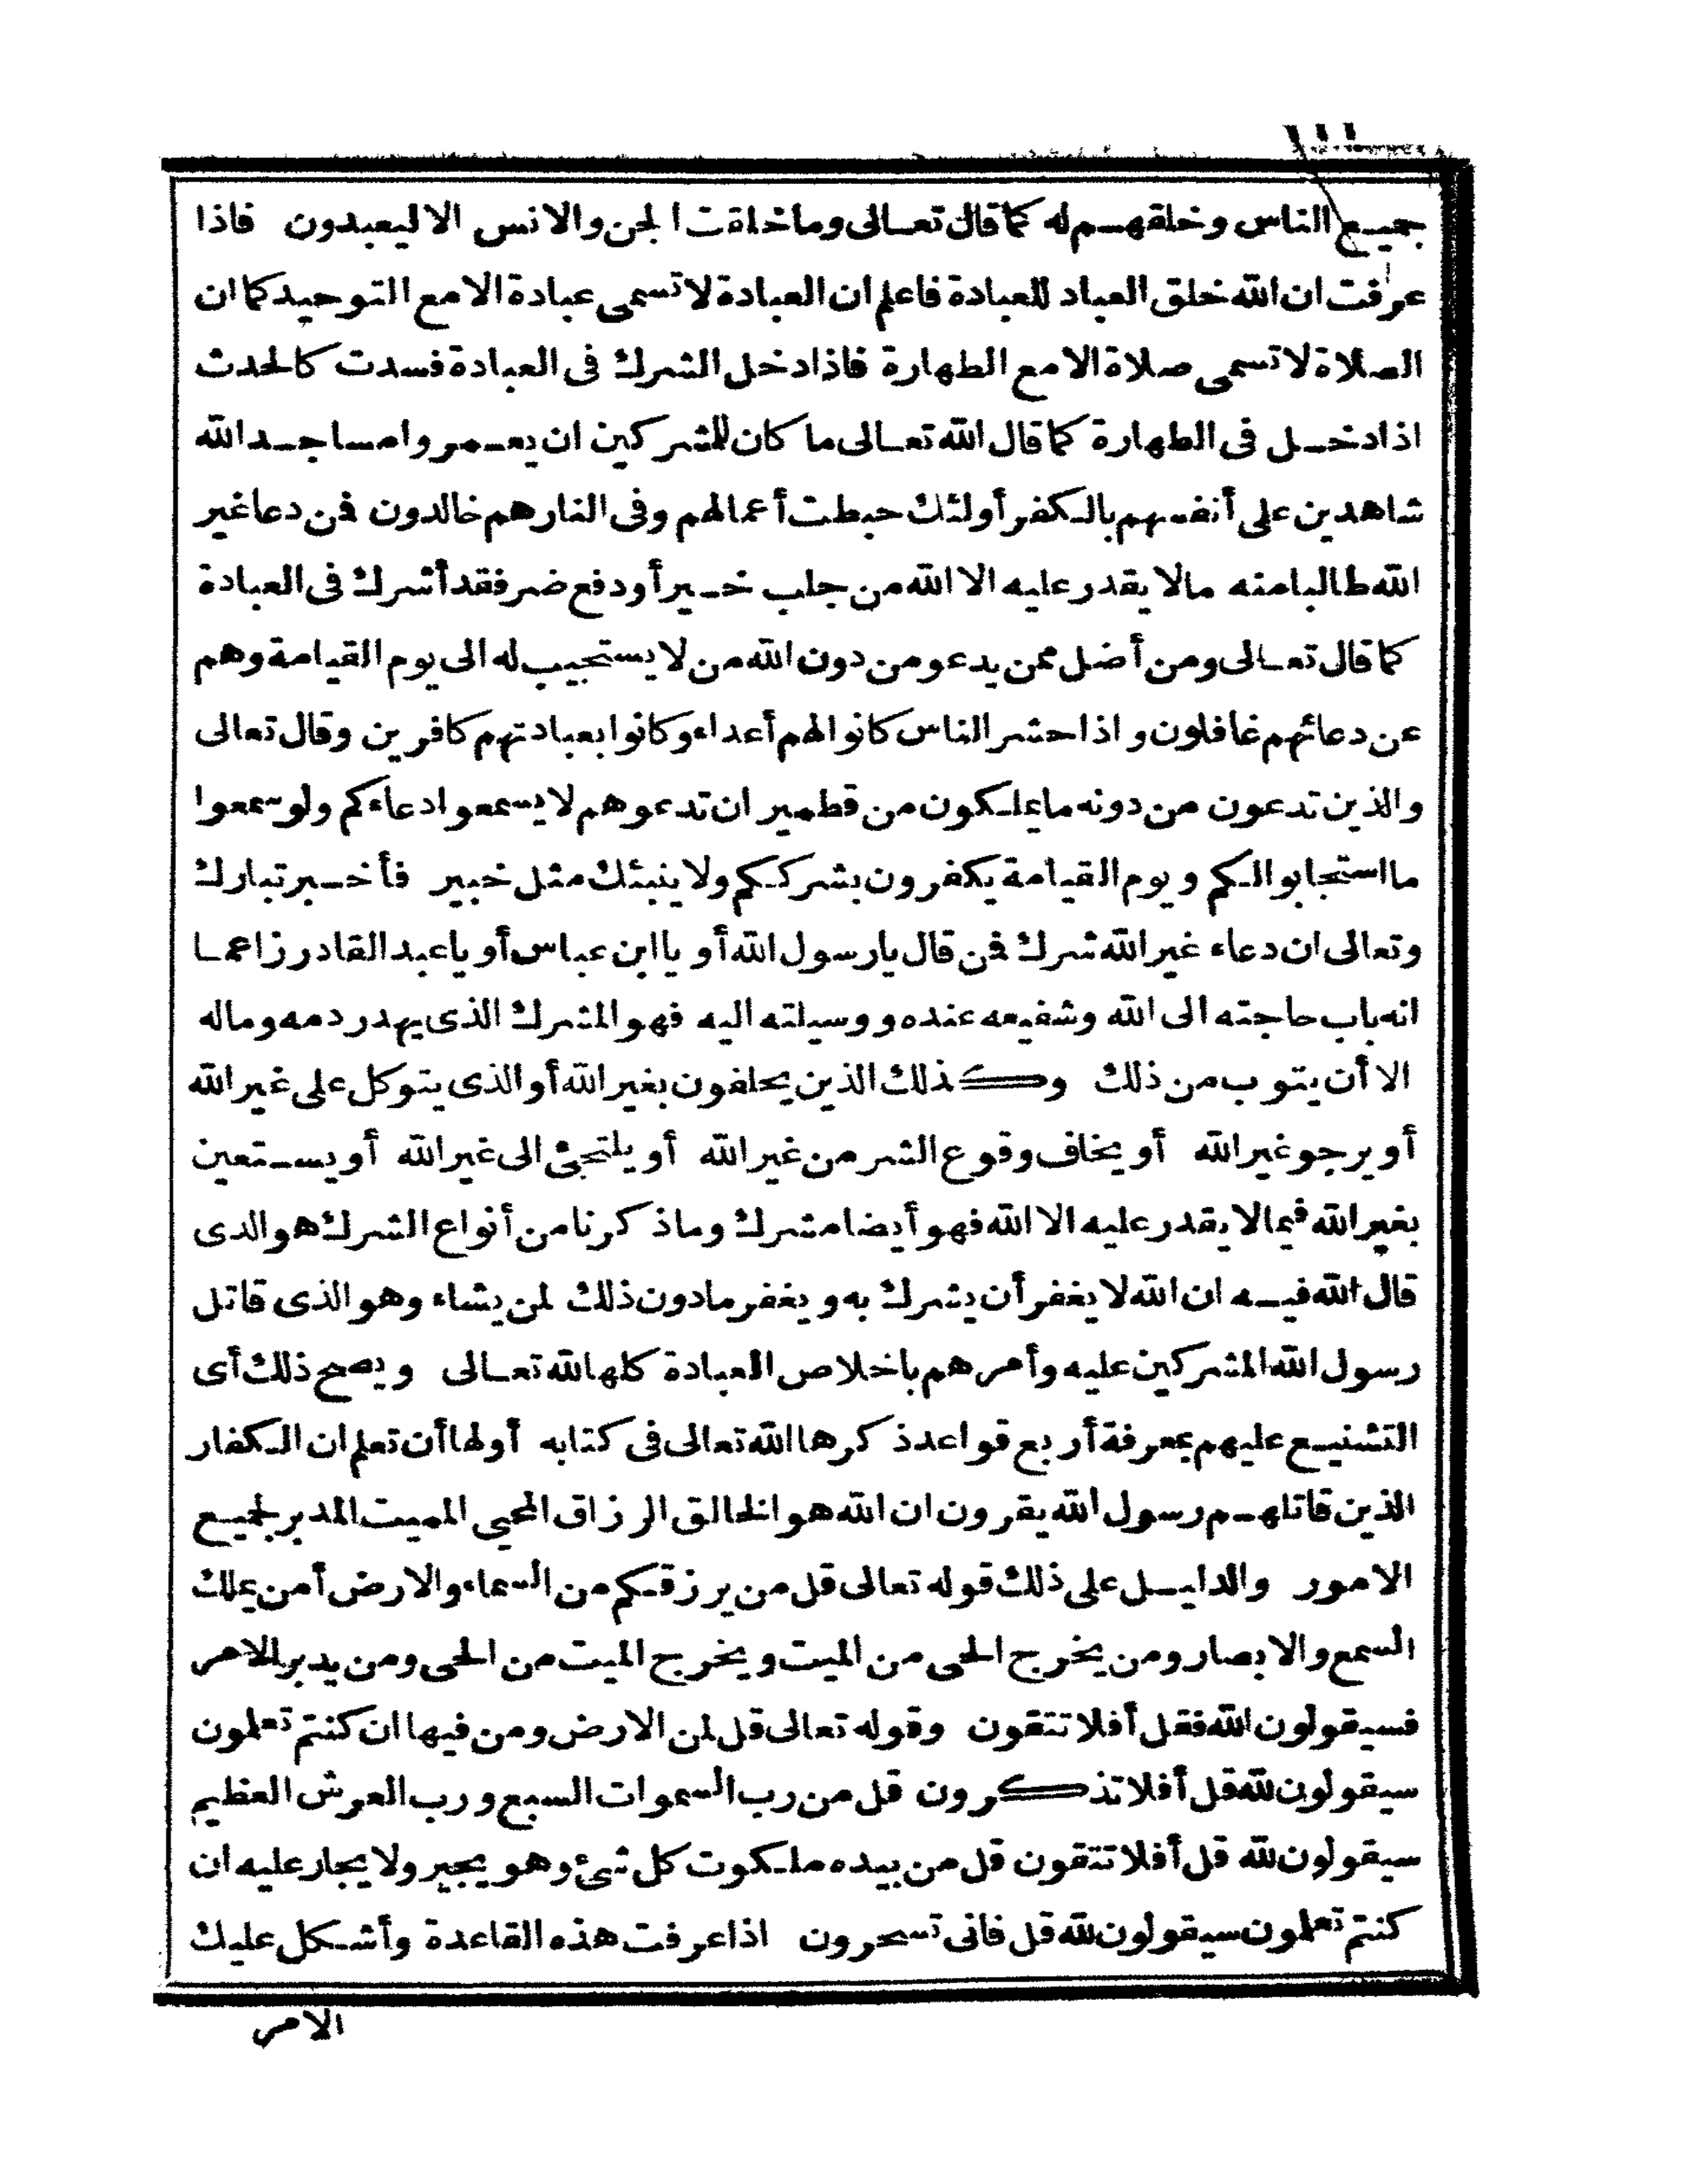 جميع الناس وخلقهم له كما قال تعالى وما خلقت الجن والانس الا ليعبدون فاذا
عرفت ان الله خلق العباد للعبادة فاعلم ان العبادة لا تسمى عبادة الا مع التوحيد كما ان
الصلاة لا تسمى صلاة الا مع الطهارة فاذا دخل الشرك فى العبادة فسدت كالحدث
اذا دخل فى الطهارة كما قال الله تعالى ما كان للمشركين ان يعمروا مساجد الله
شاهدين على أنفسهم بالكفر أولئك حبطت أعمالهم وفى النار هم خالدون فمن دعا غير
الله طالبا منه مالا يقدر عليه الا الله من جلب خير أو دفع ضر فقد أشرك فى العبادة
كما قال تعالى ومن أضل ممن يدعو من دون الله من لا يستجيب له الى يوم القيامة وهم
عن دعائهم غافلون واذا حشر الناس كانوا لهم أعداء وكانوا بعبادتهم كافرين وقال تعالى
والذين تدعون من دونه ما يملكون من قطمير ان تدعوهم لا يسمعوا دعاءكم ولو سمعوا
ما استجابوا لكم ويوم القيامة يكفرون بشرككم ولا ينبئك مثل خبير فأخبر تبارك
وتعالى ان دعاء غير الله شرك فمن قال يا رسول الله أو يا ابن عباس أو يا عبد القادر زاعما
انه باب حاجته الى الله وشفيعه عنده ووسيلته اليه فهو المشرك الذى يهدر دمه وماله
الا أن يتوب من ذلك وكذلك الذين يحلفون بغير الله أو الذى يتوكل على غير الله
أو يرجو غير الله أو يخاف وقوع الشر من غير الله أو يلتجئ الى غير الله أو يستعين
بغير الله فيما لا يقدر عليه الا الله فهو أيضا مشرك وما ذكرنا من أنواع الشرك هو الدى
قال الله فيه ان الله لا يغفر أن يشرك به ويغفر ما دون ذلك لمن يشاء وهو الذى قاتل
رسول الله المشركين عليه وأمرهم باخلاص العبادة كلها لله تعالى ويصح ذلك أى
التشنيع عليهم بمعرفة أربع قواعد ذكرها الله تعالى فى كتابه أولها أن تعلم ان الكفار
الذين قاتلهم رسول الله يقرون ان الله هو الخالق الرزاق المحيى المميت المدبر لجميع
الامور والدليل على ذلك قوله تعالى قل من يرزقكم من السماء والارض أمن يملك
السمع والابصار ومن يخرج الحى من الميت ويخرج الميت من الحى ومن يدبر الامر
فسيقولون الله فقل أفلا تتقون وقوله تعالى قل لمن الارض ومن فيها ان كنتم تعلمون
سيقولون لله قل أفلا تذكرون قل من رب السموات السبع ورب العرش العظيم
سيقولون لله قل أفلا تتقون قل من بيده ملكوت كل شئ وهو يجير ولا يجار عليه ان
كنتم تعلمون سيقولون لله قل فانى تسحرون اذا عرفت هذه القاعدة وأشكل عليك
الامر